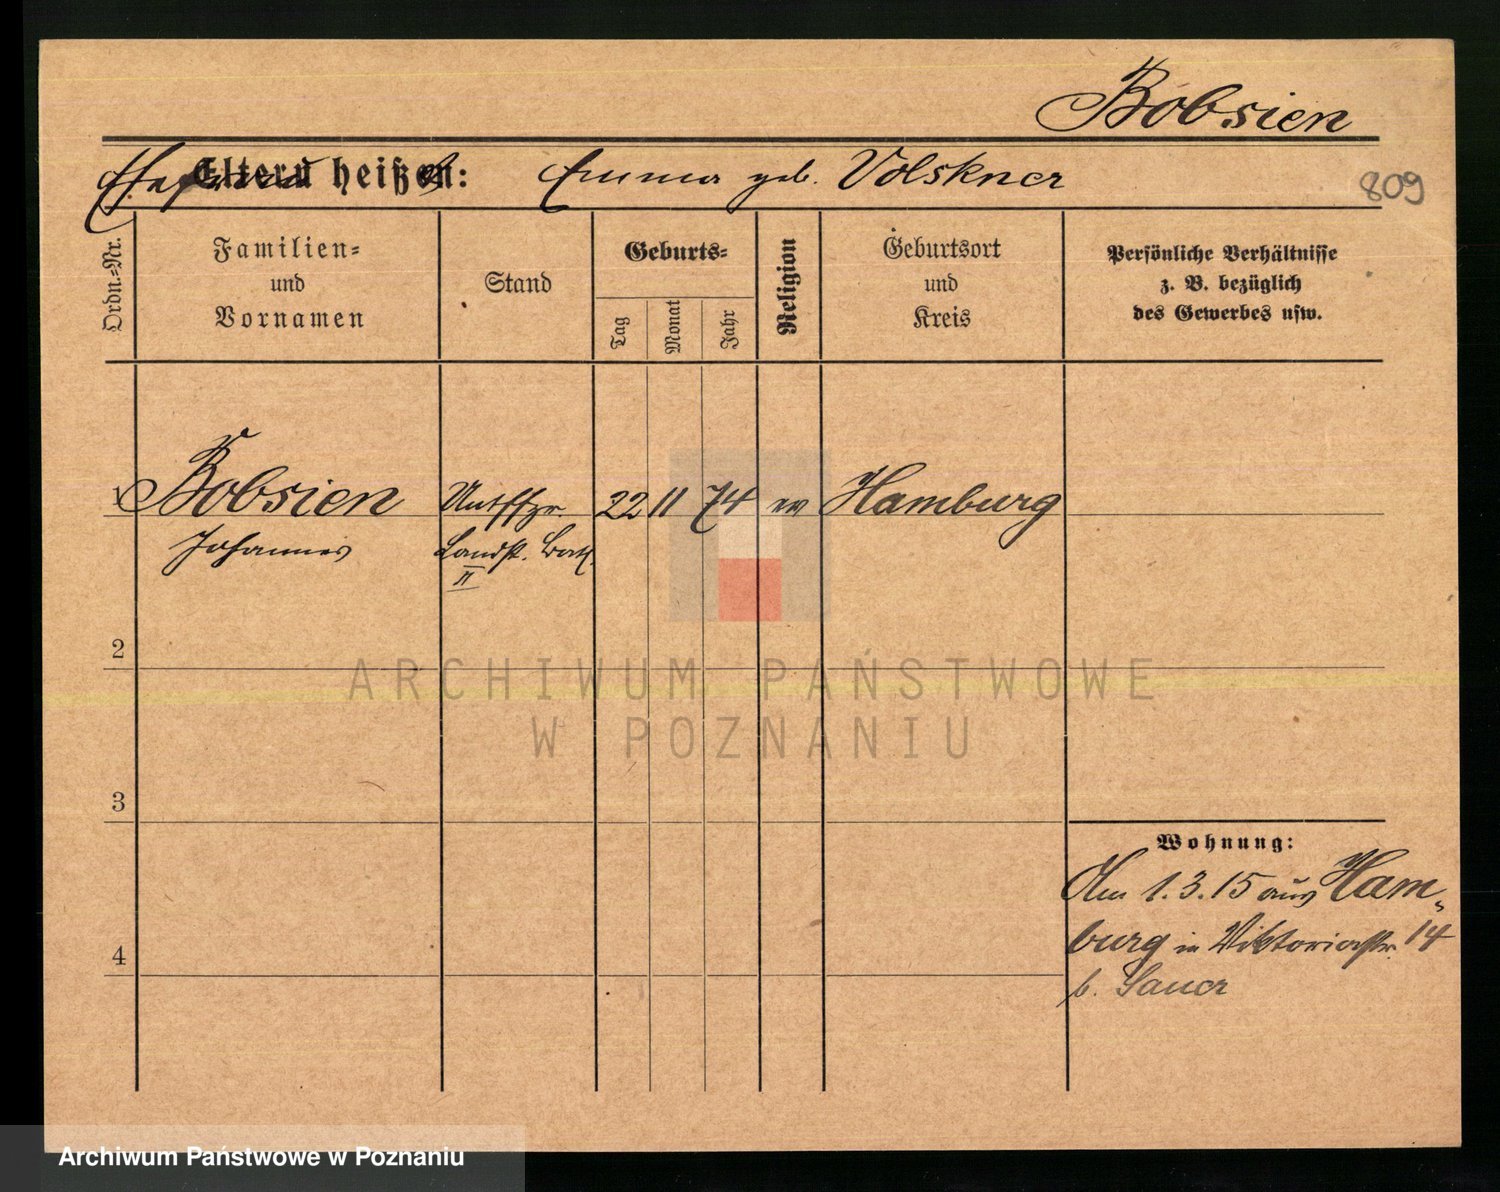 Bobsien
Eltern heißen:
Emma geb. Volskner
809
Ordn.-Nr.
Familien-
und
Vornamen
Stand
Geburts-
Tag
Monat
Jahr
Religion
Geburtsort
und
Kreis
Persönliche Verhältnisse
z. B. bezüglich
des Gewerbes usw.
1 Bobsien Untffzr. 22 11 74 ev Hamburg
Johannes Landst. Batl.
II
2
3
4
Wohnung:
Am 1.3.15 aus Ham-
burg in Viktoriastr. 14
b. Sauer
ARCHIWUM PAŃSTWOWE
W POZNANIU
Archiwum Państwowe w Poznaniu